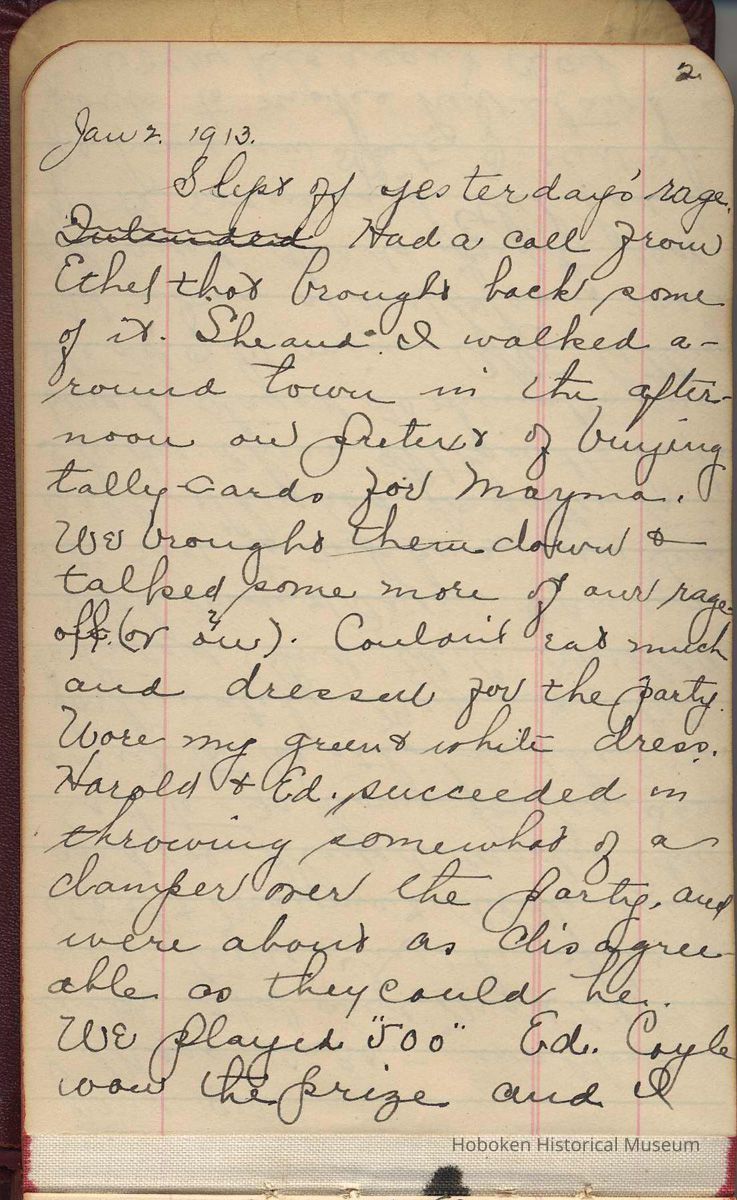 2
Jan 2. 1913.
Slept off yesterday's rage.
Intended Had a call from
Ethel that brought back some
of it. She and I walked a-
round town in the after-
noon on pretext of buying
tally-cards for Mayma.
We brought them down &
talked some more of our rage
off. (or on?). Couldn't eat much
and dressed for the party.
Wore my green & white dress.
Harold & Ed. succeeded in
throwing somewhat of a
damper over the party, and
were about as disagree-
able as they could be.
We played "500" Ed. Coyle
won the prize and I
Hoboken Historical Museum